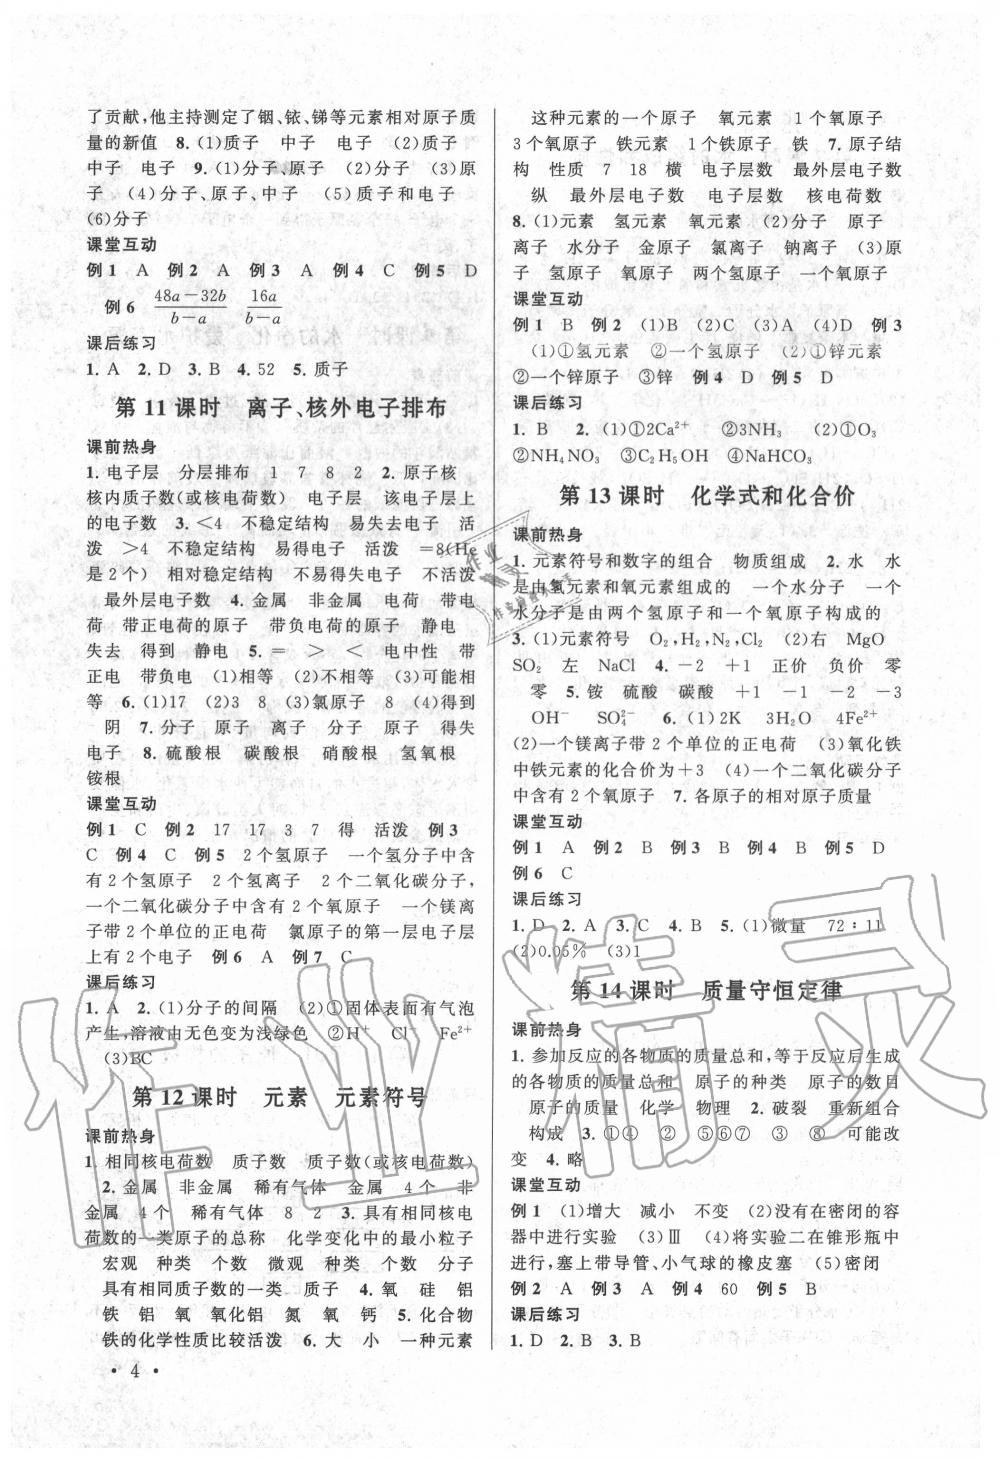 了贡献,他主持测定了铟、铱、锑等元素相对原子质
量的新值 8.(1)质子 中子 电子 (2)质子
中子 电子 9.(1)分子、原子 (2)分子 (3)原
子 (4)分子、原子、中子 (5)质子和电子
(6)分子
课堂互动
例1 A 例2 A 例3 A 例4 C 例5 D
例6 (48a-32b)/(b-a) 16a/(b-a)
课后练习
1. A 2. D 3. B 4. 52 5. 质子
第11课时 离子、核外电子排布
课前热身
1. 电子层 分层排布 1 7 8 2 2. 原子核
核内质子数(或核电荷数) 电子层 该电子层上
的电子数 3. <4 不稳定结构 易失去电子 活
泼 >4 不稳定结构 易得电子 活泼 =8(He
是2个) 相对稳定结构 不易得失电子 不活泼
最外层电子数 4. 金属 非金属 电荷 带电
荷 带正电荷的原子 带负电荷的原子 静电
失去 得到 静电 5. = > < 电中性 带
正电 带负电 (1)相等 (2)不相等 (3)可能相
等 6. (1)17 (2)3 8 (3)氯原子 8 (4)得到
阴 7. 分子 原子 离子 分子 原子 得失
电子 8. 硫酸根 碳酸根 硝酸根 氢氧根
铵根
课堂互动
例1 C 例2 17 17 3 7 得 活泼 例3
C 例4 C 例5 2个氢原子 一个氢分子中含
有2个氢原子 2个氢离子 2个二氧化碳分子,
一个二氧化碳分子中含有2个氧原子 一个镁离
子带2个单位的正电荷 氯原子的第一层电子层
上有2个电子 例6 A 例7 C
课后练习
1. A 2. (1)分子的间隔 (2)①固体表面有气泡
产生,溶液由无色变为浅绿色 ②H⁺ Cl⁻ Fe²⁺
(3)BC
第12课时 元素 元素符号
课前热身
1. 相同核电荷数 质子数 质子数(或核电荷数)
2. 金属 非金属 稀有气体 金属 4个 非
金属 4个 稀有气体 8 2 3. 具有相同核电
荷数的一类原子的总称 化学变化中的最小粒子
宏观 种类 个数 微观 种类 个数 分子
具有相同质子数的一类 质子 4. 氧 硅 铝
铁 铝 氧 氧化铝 氮 氧 钙 5. 化合物
铁的化学性质比较活泼 6. 大 小 一种元素
• 4 •
这种元素的一个原子 氧元素 1个氧原子
3个氧原子 铁元素 1个铁原子 铁 7. 原子结
构 性质 7 18 横 电子层数 最外层电子数
纵 最外层电子数 电子层数 核电荷数
8. (1)元素 氢元素 氧元素 (2)分子 原子
离子 水分子 金原子 氯离子 钠离子 (3)原
子 氢原子 氧原子 两个氢原子 一个氧原子
课堂互动
例1 B 例2 (1)B (2)C (3)A (4)D 例3
(1)①氢元素 ②一个氢原子 (2)①锌元素
②一个锌原子 ③锌 例4 D 例5 D
课后练习
1. B 2. (1)①2Ca²⁺ ②3NH₃ (2)①O₃
②NH₄NO₃ ③C₂H₅OH ④NaHCO₃
第13课时 化学式和化合价
课前热身
1. 元素符号和数字的组合 物质组成 2. 水 水
是由氢元素和氧元素组成的 一个水分子 一个
水分子是由两个氢原子和一个氧原子构成的
3. (1)元素符号 O₂,H₂,N₂,Cl₂ (2)右 MgO
SO₂ 左 NaCl 4. -2 +1 正价 负价 零
零 5. 铵 硫酸 碳酸 +1 -1 -2 -2 -3
OH⁻ SO₄²⁻ 6. (1)2K 3H₂O 4Fe²⁺
(2)一个镁离子带2个单位的正电荷 (3)氧化铁
中铁元素的化合价为+3 (4)一个二氧化碳分子
中含有2个氧原子 7. 各原子的相对原子质量
课堂互动
例1 A 例2 B 例3 B 例4 B 例5 D
例6 C
课后练习
1. D 2. A 3. C 4. B 5. (1)微量 72∶11
(2)0.05% (3)1
第14课时 质量守恒定律
课前热身
1. 参加反应的各物质的质量总和,等于反应后生成
的各物质的质量总和 原子的种类 原子的数目
原子的质量 化学 物理 2. 破裂 重新组合
构成 3. ①④ ② ⑤⑥⑦ ③ ⑧ 可能改
变 4. 略
课堂互动
例1 (1)增大 减小 不变 (2)没有在密闭的容
器中进行实验 (3)Ⅲ (4)将实验二在锥形瓶中
进行,塞上带导管、小气球的橡皮塞 (5)密闭
例2 A 例3 A 例4 60 例5 B
课后练习
1. D 2. B 3. B
作业精灵